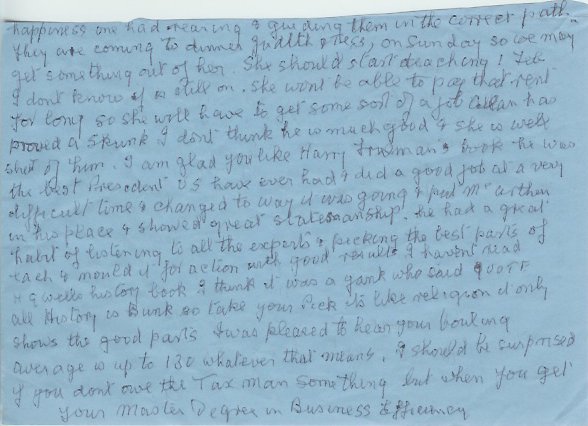 happiness one had rearing & guiding them in the correct path
They are coming to dinner, on Sunday so we may
get something out of her. She should start teaching! Feb
I don't know if is still on. She wont be able to pay that rent
for long so she will have to get some sort of a job has
proved a skunk I dont think he is much good & she is well
shet of him. I am glad you like Harry Trumans book he was
the best President US have ever had & did a good job at a very
difficult time & changed to way it was going & put McArthur
in his place & showed great statesmanship. he had a great
habit of listening to all the experts & picking the best parts of
each & mould it for action with good results I havent read
H G Wells history book I think it was a yank who said QUOTE
all History is Bunk so take your Pick its like religion it only
shows the good parts I was pleased to hear your bowling
average is up to 130 whatever that means. I should be surprised
if you dont owe the Tax man something but when you get
your Master Degree in Business Efficiency